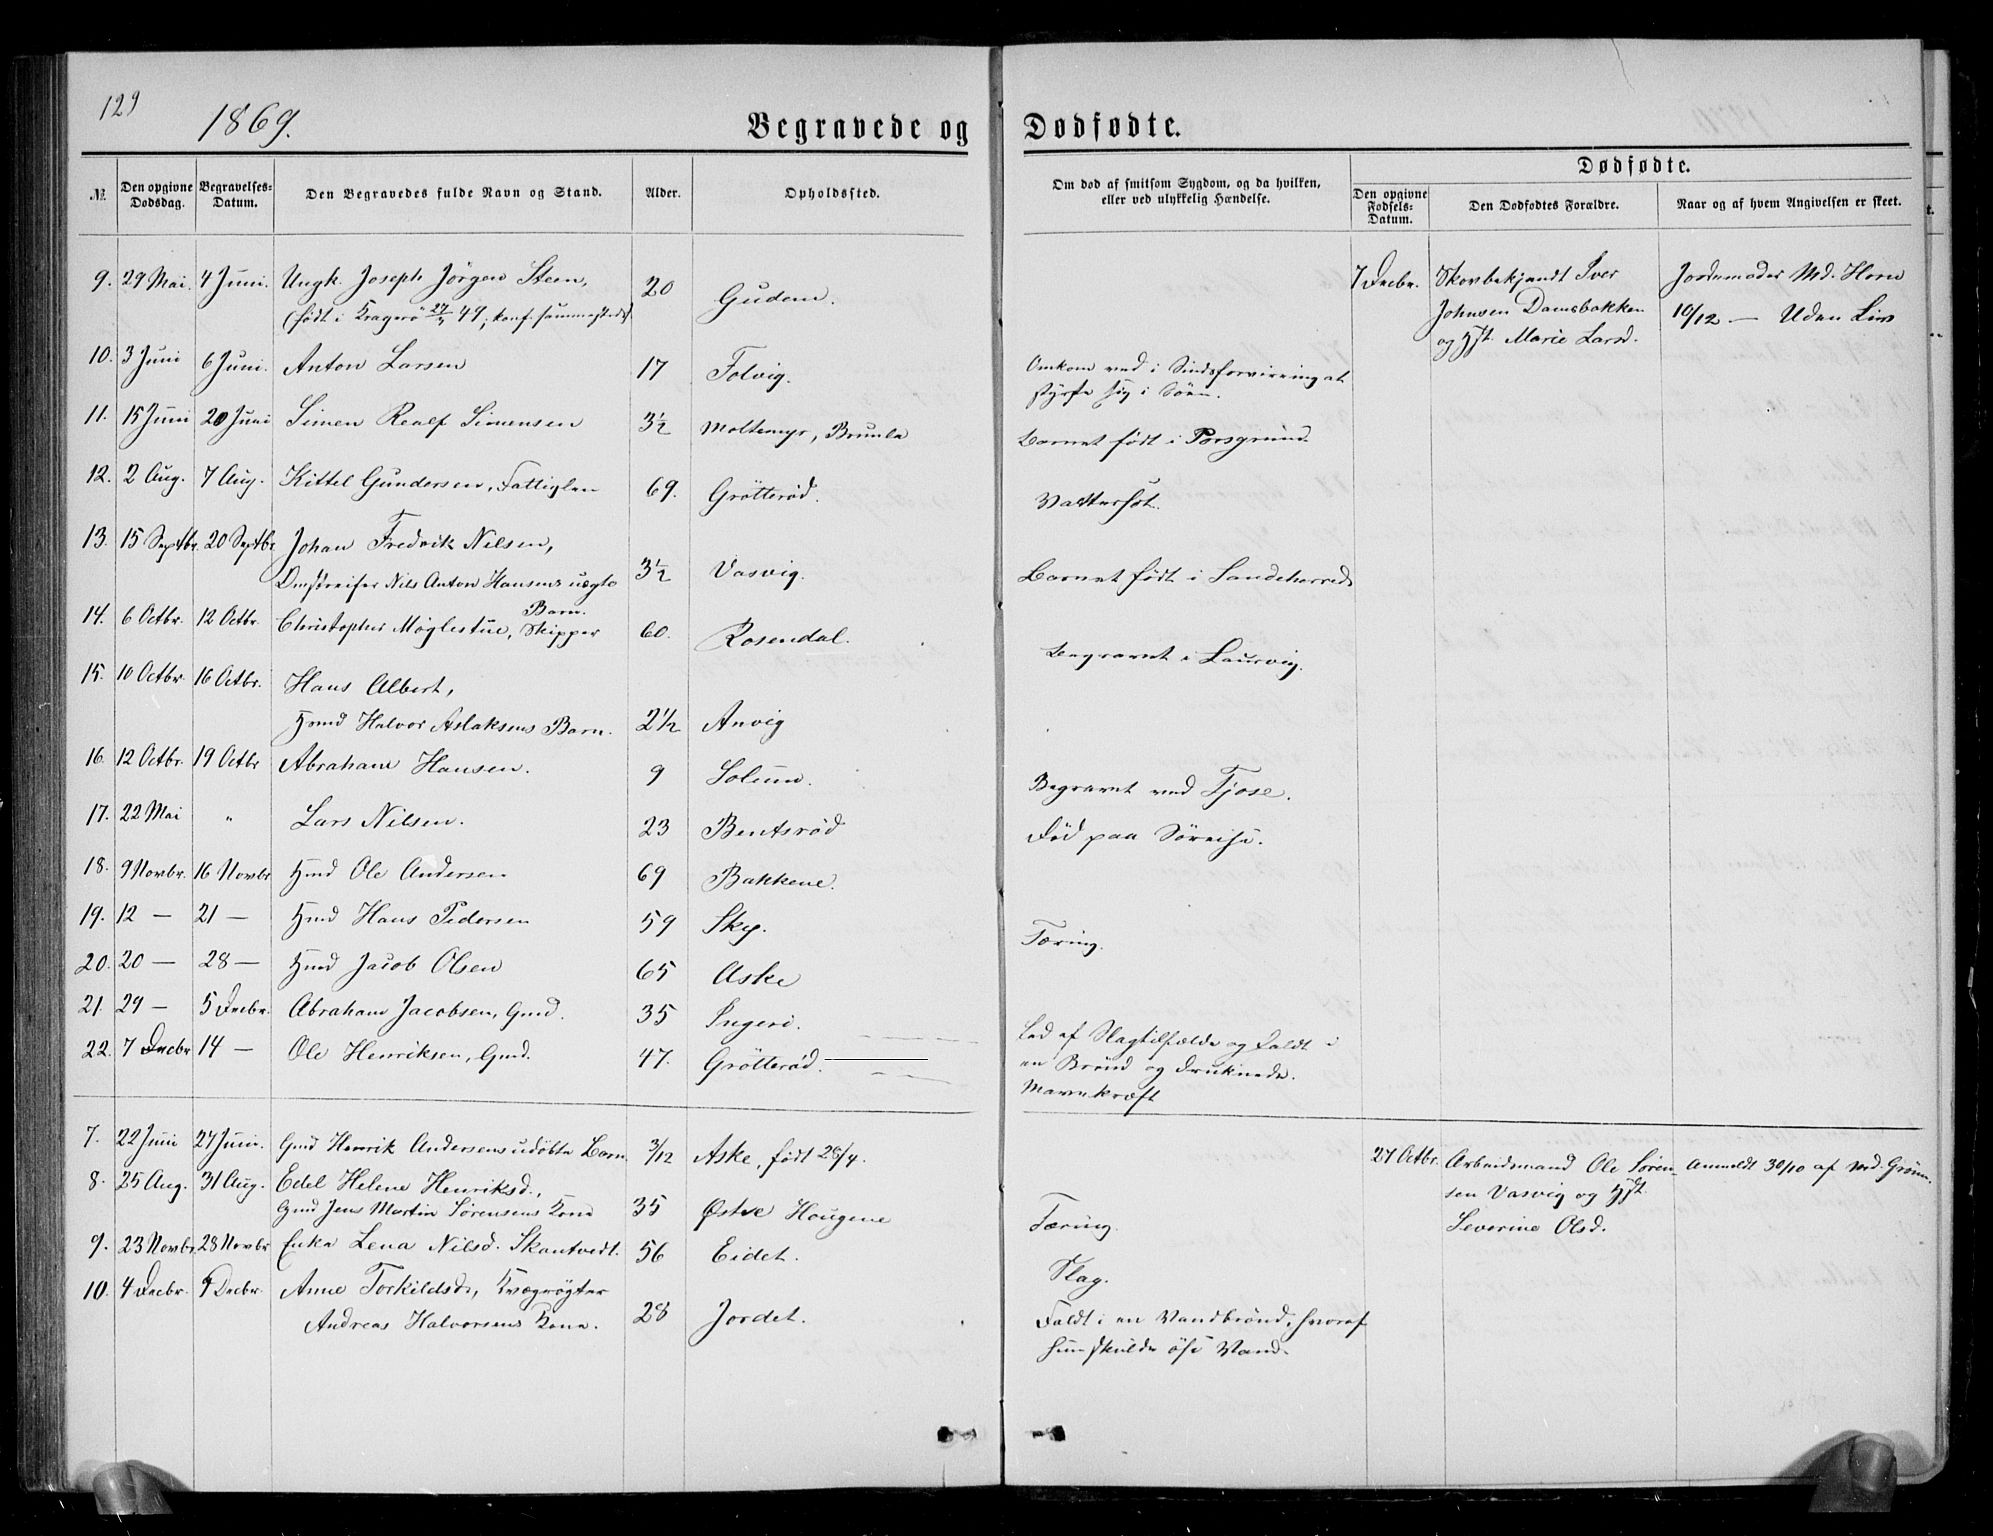 129
1869.
Begravede og Dødfødte.
№
Den opgivne Dødsdag.
Begravelses-Datum.
Den Begravedes fulde Navn og Stand.
Alder.
Opholdssted.
Om død af smitsom Sygdom, og da hvilken, eller ved ulykkelig Hændelse.
Dødfødte.
Den opgivne Fødsels-Datum.
Den Dødfødtes Forældre.
Naar og af hvem Angivelsen er skeet.
9. 29 Mai 4 Juni. Ungk. Joseph Jørgen Steen, 20 Gudem.
(født i Kragerö 49, konf. sammesteds)
7 Decbr. Iver Jordemoder Md. Horn
Johnsen Damsbakken 10/12 — Uden Liv
og Hst. Marie Larsd.
10. 3 Juni 6 Juni. Anton Larsen 17 Folvig. Omkom ved i Sindsforvirring at
styrte sig i Søen.
11. 15 Juni 20 Juni Simen Realf Simensen 3½ Moltemyr, Brunla Barnet født i Porsgrund.
12. 2 Aug. 7 Aug. Kittel Gundersen, Fattiglem 69. Grötteröd. Vattersot.
13. 15 Septbr. 20 Septbr. Johan Fredrik Nilsen,
Nils Anton Hansens uægte 3½ Vasvig. Barnet født i Sandeherred
Barn.
14. 6 Octbr. 12 Octbr. Christopher Møglestue, Skipper 60. Rosendal. Begravet i Laurvig.
15. 10 Octbr. 16 Octbr. Hans Albert,
Hmd Halvor Aslaksens Barn. 2½ Anvig
16. 12 Octbr. 19 Octbr Abraham Hansen. 9 Solum. Begravet ved Tjose.
17. 22 Mai " Lars Nilsen. 23 Bentsrød Død paa Søreise.
18. 9 Novbr. 16 Novbr Hmd Ole Andersen 69 Bakkene.
19. 12 — 21 — Hmd Hans Pedersen 59 Sky. Tæring.
20. 20 — 28 — Hmd Jacob Olsen 65 Aske
21. 29 — 5 Decbr. Abraham Jacobsen, Gmd. 35 Ingeri. Led af Slagtilfælde og faldt i
en Brønd og druknede.
22. 7 Decbr 14 — Ole Henriksen, Gmd. 47. Grötteröd. Mavekræft
7. 22 Juni 27 Juni. Gmd Henrik Andersens udøbte Barn. 3/12 Aske, født 28/4.
27 Octbr. Arbeidsmand Ole Søren- Anmeldt 30/10 af Md. Grönn.
sen Vasvig og Hst.
Severine Olsd.
8. 25 Aug. 31 Aug. Edel Helene Henriksd.,
Gmd Jens Martin Sørensens Kone 35 Østre Hougene Tæring.
9. 23 Novbr. 28 Novbr Enke Lena Nilsd. Skantvedt. 56 Eidet. Slag.
10. 4 Decbr. 9 Decbr. Anne Torkildsd., Kvægrøgter
Andreas Halvorsens Kone. 28 Jordet. Faldt i en Vandbrønd, hvoraf
hun skulde øse Vand.